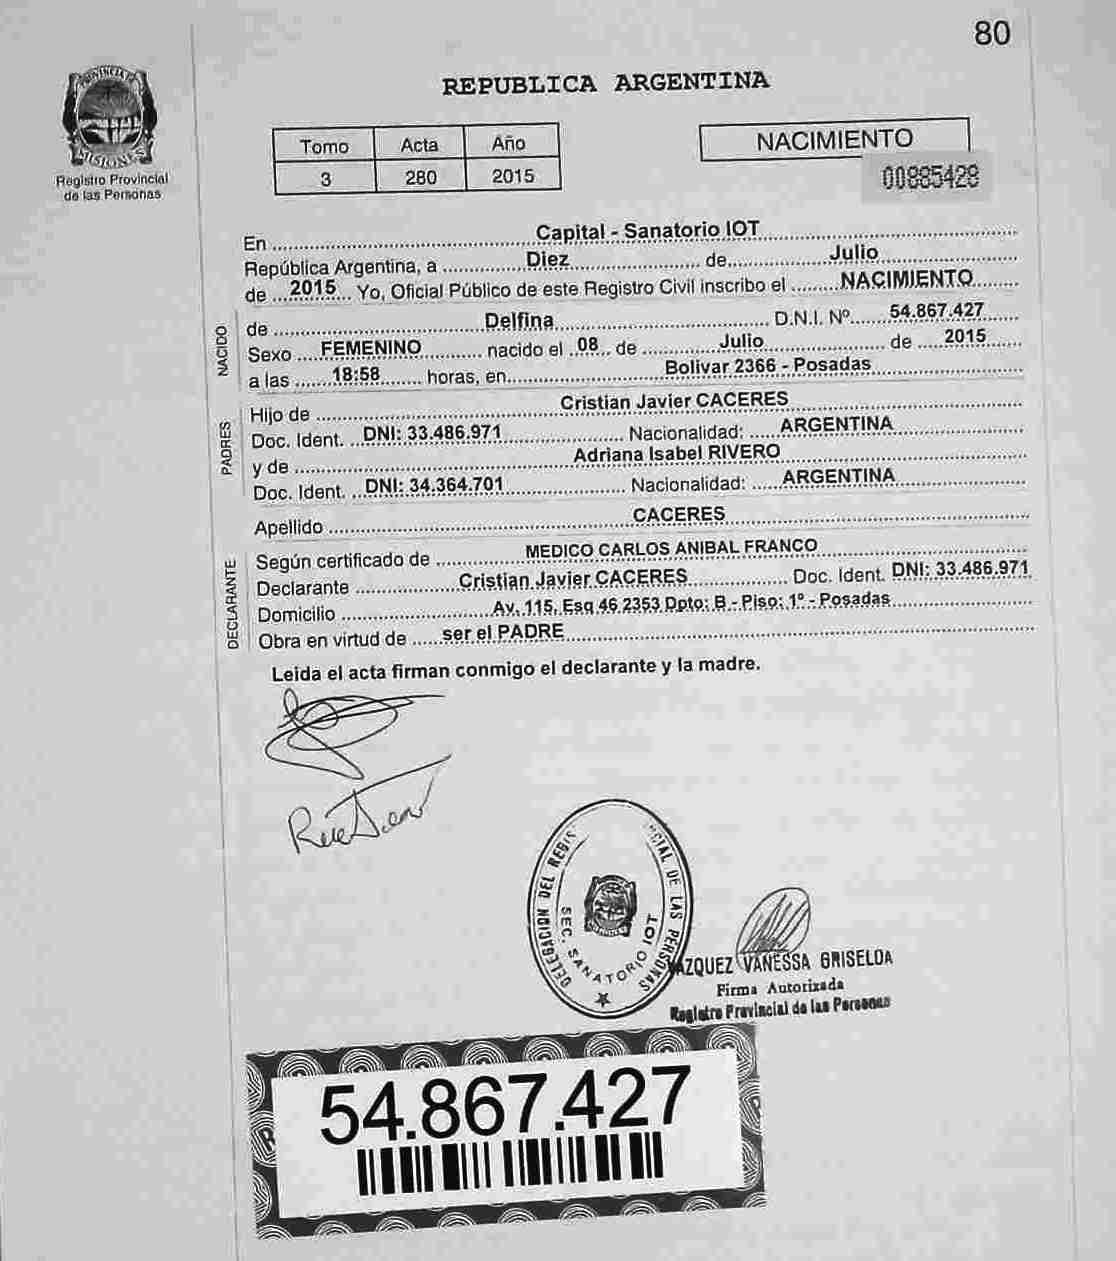 80
PROVINCIA DE
MISIONES
Registro Provincial
de las Personas
REPUBLICA ARGENTINA
Tomo Acta Año
3 280 2015
NACIMIENTO
00885428
En Capital - Sanatorio IOT
República Argentina, a Diez de Julio
de 2015 Yo, Oficial Público de este Registro Civil inscribo el NACIMIENTO
NACIDO
de Delfina D.N.I. Nº 54.867.427
Sexo FEMENINO nacido el 08 de Julio de 2015
a las 18:58 horas, en Bolivar 2366 - Posadas
PADRES
Hijo de Cristian Javier CACERES
Doc. Ident. DNI: 33.486.971 Nacionalidad: ARGENTINA
y de Adriana Isabel RIVERO
Doc. Ident. DNI: 34.364.701 Nacionalidad: ARGENTINA
Apellido CACERES
DECLARANTE
Según certificado de MEDICO CARLOS ANIBAL FRANCO
Declarante Cristian Javier CACERES Doc. Ident. DNI: 33.486.971
Domicilio Av. 115, Esq 46 2353 Dpto: B - Piso: 1º - Posadas
Obra en virtud de ser el PADRE
Leida el acta firman conmigo el declarante y la madre.
DELEGACION DEL DE LAS PERSONAS
SEC. SANATORIO IOT
VAZQUEZ VANESSA GRISELDA
Firma Autorizada
Registro Provincial de las Personas
54.867.427